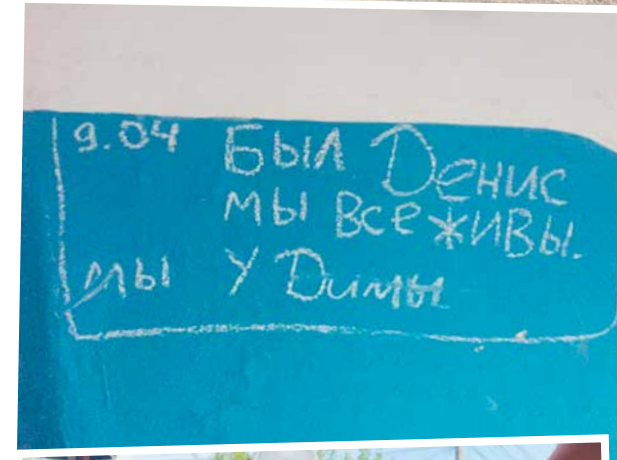 9.04 БЫЛ Денис
МЫ ВСЕ ЖИВЫ.
МЫ У Димы